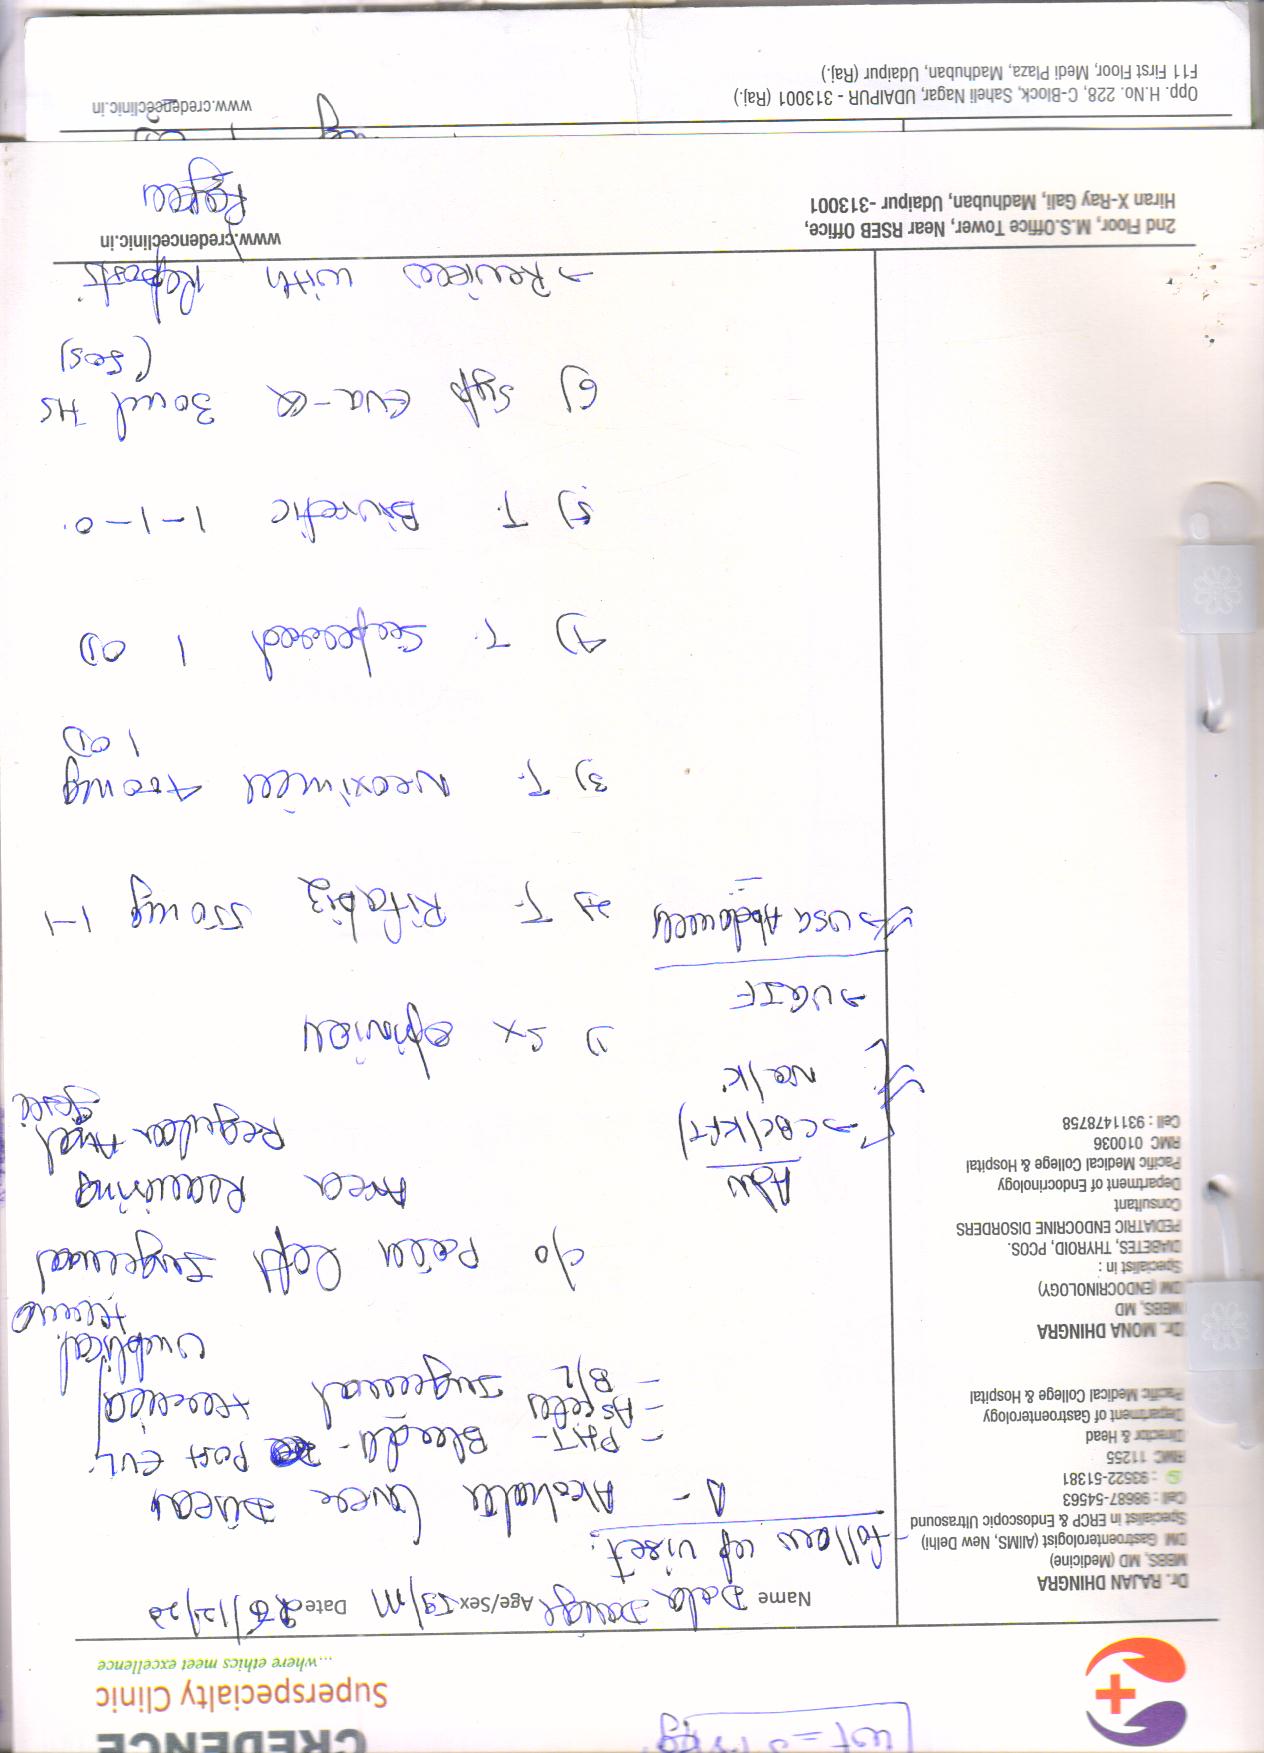 wt =
CREDENCE
Superspecialty Clinic
...where ethics meet excellence
Name Age/Sex 59/M Date 26/12/22
Dr. RAJAN DHINGRA
MBBS, MD (Medicine)
DM Gastroenterologist (AIIMS, New Delhi)
Specialist in ERCP & Endoscopic Ultrasound
Cell : 98687-54563
: 93522-51381
RMC 11255
Director & Head
Department of Gastroenterology
Pacific Medical College & Hospital
Dr. MONA DHINGRA
MBBS, MD
DM (ENDOCRINOLOGY)
Specialist in :
DIABETES, THYROID, PCOS.
PEDIATRIC ENDOCRINE DISORDERS
Consultant
Department of Endocrinology
Pacific Medical College & Hospital
RMC 010036
Cell : 9311478758
- follow up visit:
Δ - Alcoholic Liver Disease
- PHT - Bleed - Post EVL
- Ascites
- B/L Inguinal Hernia
Umblical Hernia
c/o Pain Left Inguinal
Area Requiring
Regular
Adv
→ CBC/KFT
Na/K
→ UGIE
→ USG Abdomen
1) Sx opinion
2) T. Rifabiz 550mg 1-1
3) T. 400mg
1 OD
4) T. 1 OD
5) T. 1-1-0
6) Syp Eva-Q 30ml HS
(SOS)
→ Review with Reports
2nd Floor, M.S.Office Tower, Near RSEB Office,
Hiran X-Ray Gali, Madhuban, Udaipur -313001
www.credenceclinic.in
Opp. H.No. 228, C-Block, Saheli Nagar, UDAIPUR - 313001 (Raj.)
F11 First Floor, Medi Plaza, Madhuban, Udaipur (Raj.)
www.credenceclinic.in